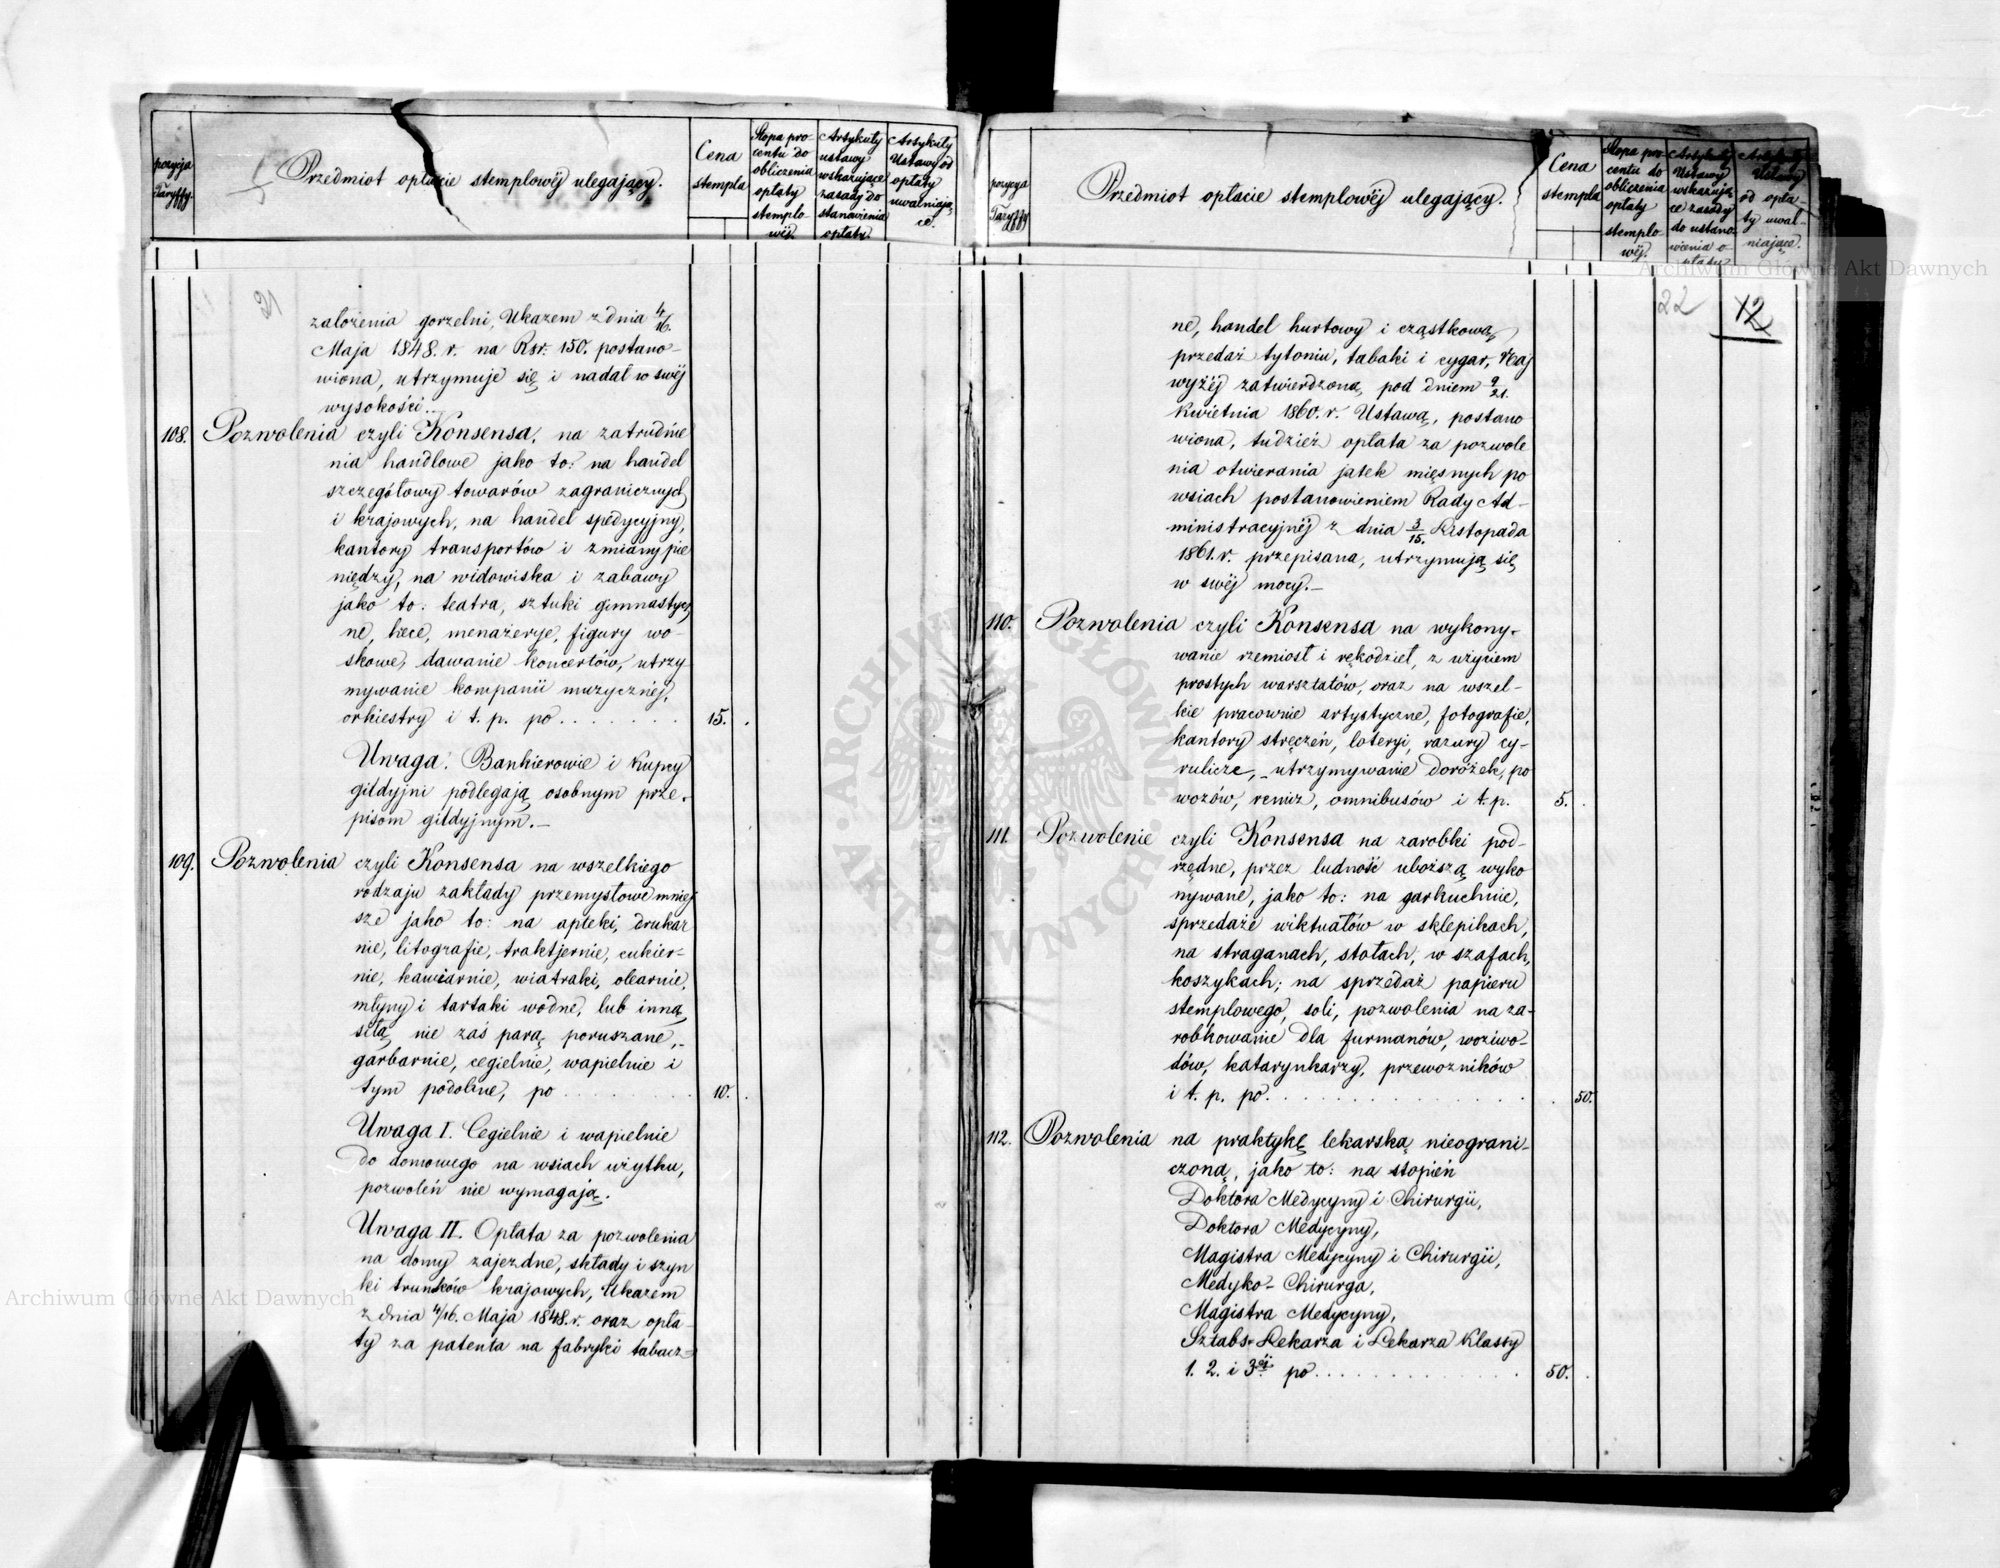 pozycja
Taryffy.
Przedmiot opłacie stemplowéj ulegający.
Cena
stempla
Stopa pro-
centu do
obliczenia
opłaty
stemplo-
wéj.
Artykuły
ustawy
wskazujące
zasady do
stanowienia
opłaty.
Artykuły
Ustawy od
opłaty
uwalniają-
ce.
21
założenia gorzelni, Ukazem z dnia 4/16.
Maja 1848. r. na Rsr. 150. postano-
wiona, utrzymuje się i nadal w swéj
wysokości..
108. Pozwolenia czyli Konsensa, na zatrudnie
nia handlowe jako to: na handel
szczegółowy towarów zagranicznych
i krajowych, na handel spedycyjny,
kantory transportów i zmiany pie
niędzy, na widowiska i zabawy
jako to: teatra, sztuki gimnastycz
ne, hece, menażeryje, figury wo-
skowe, dawanie koncertów, utrzy
mywanie kompanii muzycznéj,
orkiestry i t. p. po . . . . . . . 15. .
Uwaga. Bankierowie i Kupcy
gildyjni podlegają osobnym prze-
pisom gildyjnym.—
109. Pozwolenia czyli Konsensa na wszelkiego
rodzaju zakłady przemysłowe mniej
sze jako to: na apteki, drukar
nie, litografie, traktjernie, cukier-
nie, kawiarnie, wiatraki, olearnie,
młyny i tartaki wodne, lub inną
siłą nie zaś parą poruszane,-
garbarnie, cegielnie, wapielnie i
tym podobne, po . . . . . . . 10. .
Uwaga I. Cegielnie i wapielnie
do domowego na wsiach użytku,
pozwoleń nie wymagają.
Uwaga II. Opłata za pozwolenia
na domy zajezdne, składy i szyn
ki trunków krajowych, Ukazem
z dnia 4/16. Maja 1848. r. oraz opła-
ty za patenta na fabryki tabacz-
pozycya
Taryffy
Przedmiot opłacie stemplowéj ulegający.
Cena
stempla
Stopa pro-
centu do
obliczenia
opłaty
stemplo-
wéj.
Artykuły
Ustawy
wskazują-
ce zasady
do ustano-
wienia o-
płaty
Artykuły
Ustawy
od opła-
ty uwal-
niające.
22
12
ne, handel hurtowy i cząstkową
przedaż tytoniu, tabaki i cygar, Naj
wyżéj zatwierdzoną pod dniem 9/21.
Kwietnia 1860. r. Ustawą, postano
wiona, tudzież opłata za pozwole
nia otwierania jatek mięsnych po
wsiach postanowieniem Rady Ad-
ministracyjnéj z dnia 3/15. Listopada
1861. r. przepisana, utrzymują się
w swéj mocy.—
110. Pozwolenia czyli Konsensa na wykony-
wanie rzemiosł i rękodzieł, z użyciem
prostych warsztatów, oraz na wszel-
kie pracownie artystyczne, fotografie,
kantory stręczeń, loteryi, razury cy-
rulicze, utrzymywanie dorożek, po
wozów, remiz, omnibusów i t. p. 5. .
111. Pozwolenie czyli Konsensa na zarobki pod-
rzędne, przez ludność uboższą wyko
nywane, jako to: na garkuchnie,
sprzedaże wiktuałów w sklepikach,
na straganach, stołach, w szafach,
koszykach; na sprzedaż papieru
stemplowego, soli, pozwolenia na za-
robkowanie dla furmanów, woziwo-
dów, katarynkarzy, przewozników
i t. p. po. . . . . . . . . . . . 50.
112. Pozwolenia na praktykę lekarską nieograni-
czoną, jako to: na stopień
Doktora Medycyny i Chirurgii,
Doktora Medycyny,
Magistra Medycyny i Chirurgii,
Medyko-Chirurga,
Magistra Medycyny,
Sztabs-Lekarza i Lekarza Klassy
1. 2. i 3éj po . . . . . . . . . . 50. .
ARCHIWUM GŁÓWNE AKT DAWNYCH
Archiwum Główne Akt Dawnych
Archiwum Główne Akt Dawnych